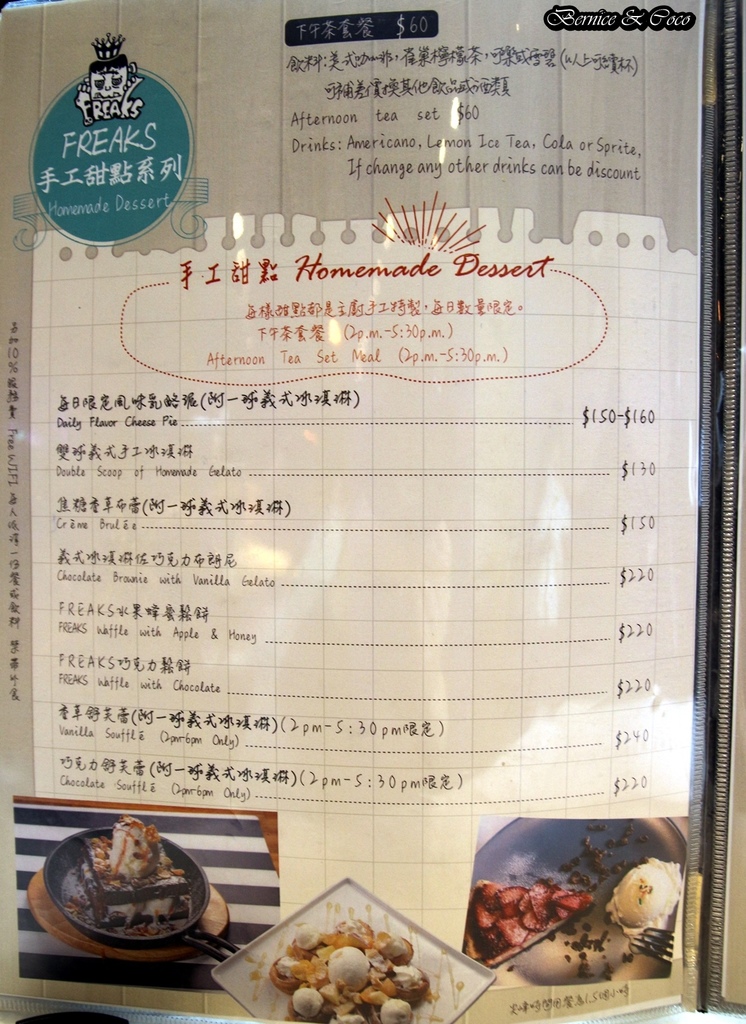 Bernice & Coco
下午茶套餐 $60
飲料:美式咖啡,雀巢檸檬茶,可樂或雪碧(以上可續杯)
可補差價換其他飲品或酒類
Afternoon tea set $60
Drinks: Americano, Lemon Ice Tea, Cola or Sprite,
If change any other drinks can be discount
FREAKS
FREAKS
手工甜點系列
Homemade Dessert
手工甜點 Homemade Dessert
每樣甜點都是主廚手工特製,每日數量限定。
下午茶套餐 (2p.m.-5:30p.m.)
Afternoon Tea Set Meal (2p.m.-5:30p.m.)
每日限定風味乳酪派(附一球義式冰淇淋)
Daily Flavor Cheese Pie $150-$160
雙球義式手工冰淇淋
Double Scoop of Homemade Gelato $130
焦糖香草布蕾(附一球義式冰淇淋)
Crème Brulée $150
義式冰淇淋佐巧克力布朗尼
Chocolate Brownie with Vanilla Gelato $220
FREAKS水果蜂蜜鬆餅
FREAKS Waffle with Apple & Honey $220
FREAKS巧克力鬆餅
FREAKS Waffle with Chocolate $220
香草舒芙蕾(附一球義式冰淇淋)(2pm-5:30pm限定)
Vanilla Soufflé (2pm-6pm Only) $240
巧克力舒芙蕾(附一球義式冰淇淋)(2pm-5:30pm限定)
Chocolate Soufflé (2pm-6pm Only) $220
另加10%服務費 Free WIFI 每人低消一份餐或飲料 禁帶外食
尖峰時間用餐為1.5個小時